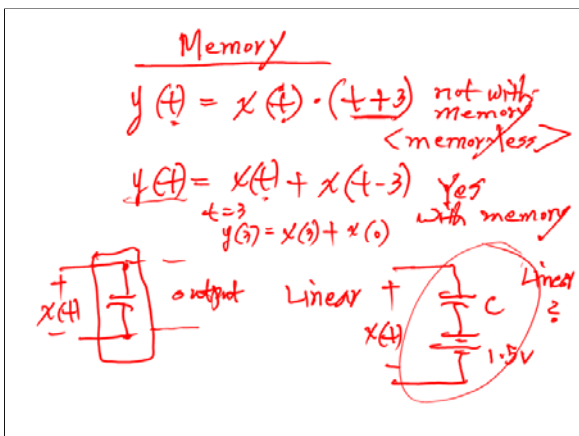 Memory
y(t) = x(t) · (t+3) not with memory
<memoryless>
y(t) = x(t) + x(t-3) Yes
t=3 with memory
y(3) = x(3) + x(0)
+ x(t) - output Linear + x(t) - C 1.5V Linear ?